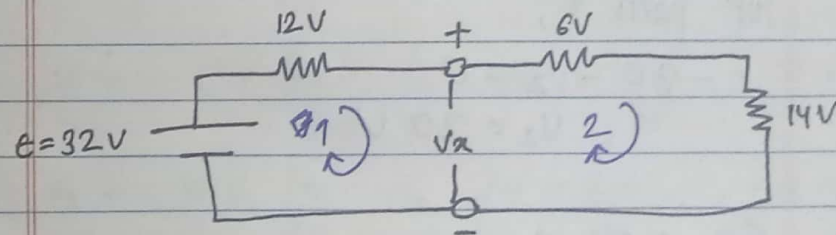 12V + 6V
E=32V 1 Vx 2 14V
-